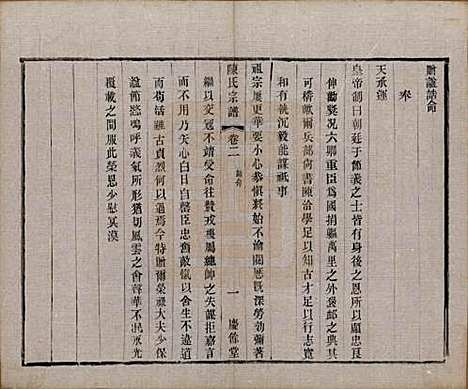 贈諡誥命
奉
天承運
皇帝制曰朝廷于節義之士皆有身後之恩所以勵忠良
伸 獎況六卿重臣爲國捐軀萬里之外褒卹之典其
可稽歟爾兵部尚書陳洽學足以知古才足以行志寬
和有執沉毅能謀祗事
祖宗屢更華要小心恭愼終始不渝閱歷旣深勞勚彌著
陳氏宗譜 卷二 誥命 一 慶餘堂
繼以交冦不靖受命往贊戎務屬總帥之失謀拒嘉言
不用乃矢心白日自誓臣忠奮敵愾以舍生不違道
而苟活雖古貞烈何以過焉今特贈爾榮祿大夫少保
諡節愍嗚呼義氣所形猶切風雲之會聲華不 永光
覆載之間服此榮恩少慰冥漠